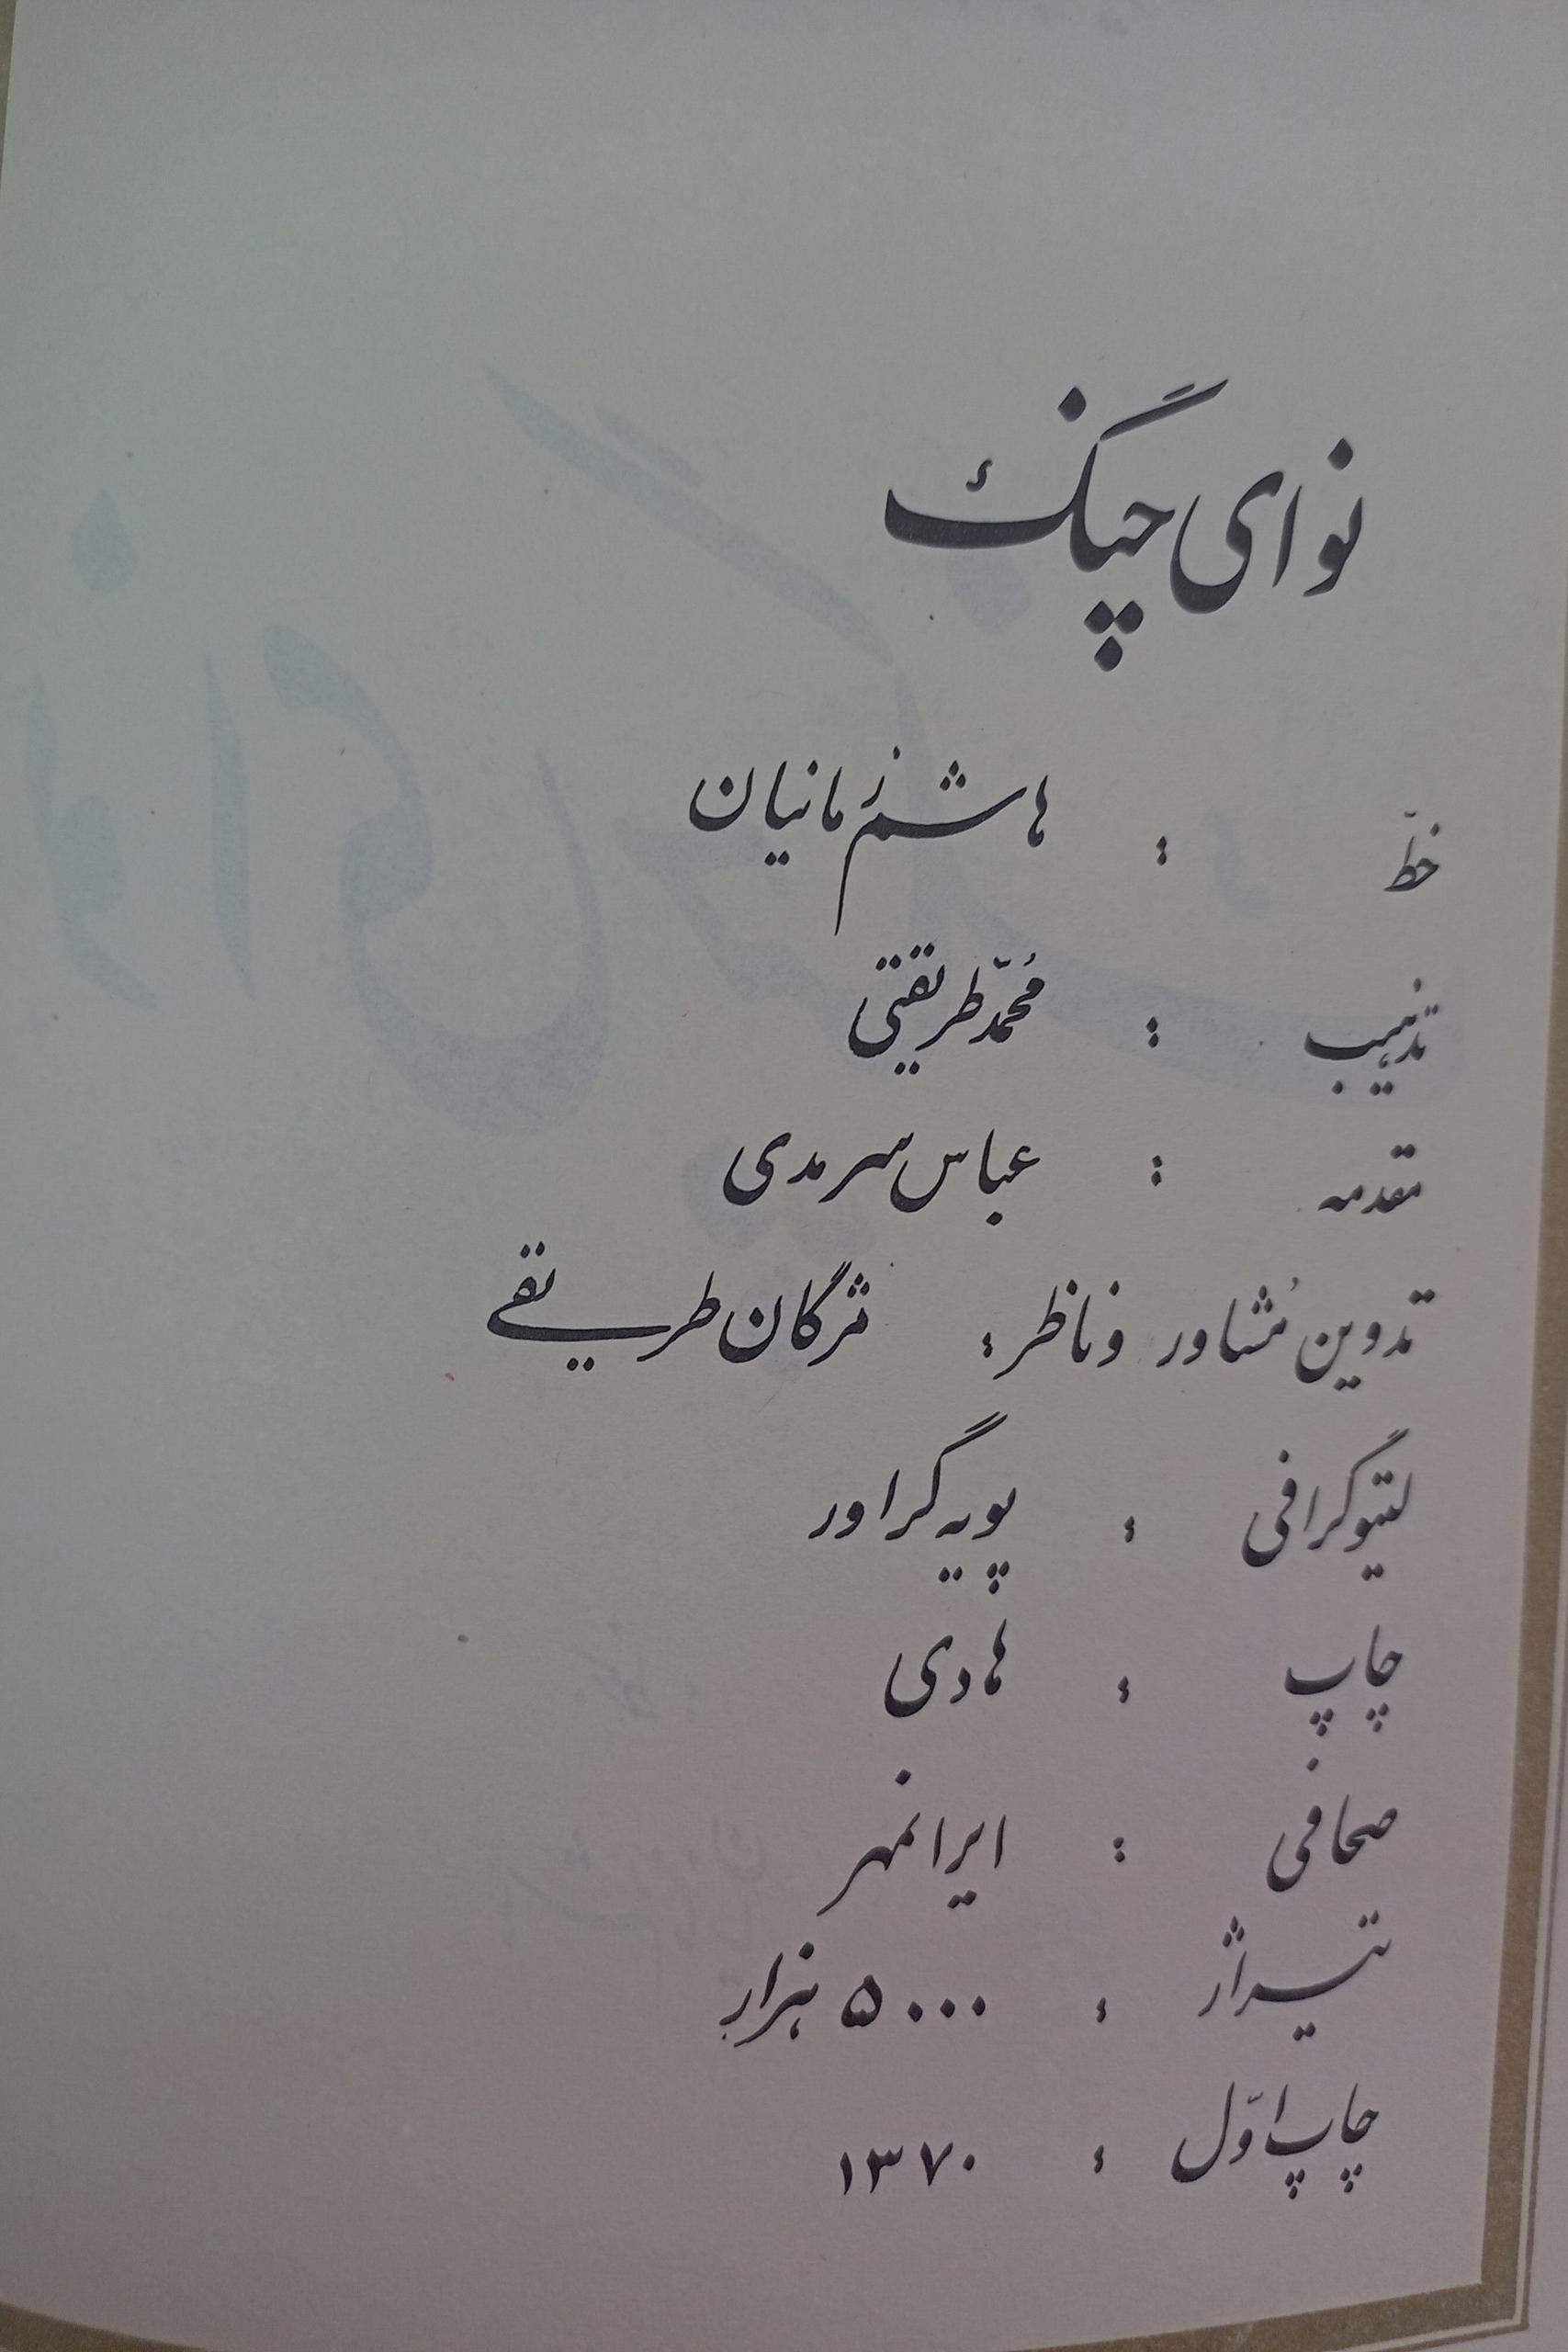 نوای چنگ
خطّ : هاشم زمانیان
تذهیب : مُحمّد طریقتی
مقدمه : عباس سرمدی
تدوین مُشاور و ناظر : مژگان طریقتی
لیتوگرافی : پویه گراور
چاپ : هادی
صحافی : ایرانمهر
تیراژ : ۵۰۰۰ هزار
چاپ اوّل : ۱۳۷۰